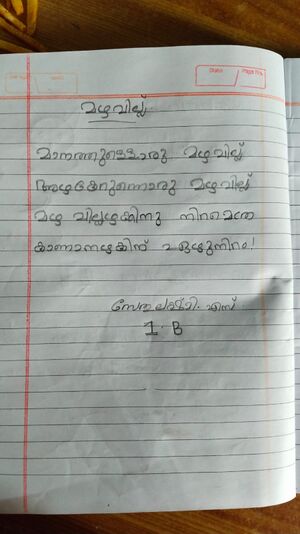 Date
Page No.
മഴവില്ല്
മാനത്തുണ്ടൊരു മഴവില്ല്
അഴകേറുന്നൊരു മഴവില്ല്
മഴ വില്ലഴകിനു നിറമെത്ര
കാണാനഴകിന് ഏഴുനിറം!
എസ്
1. B